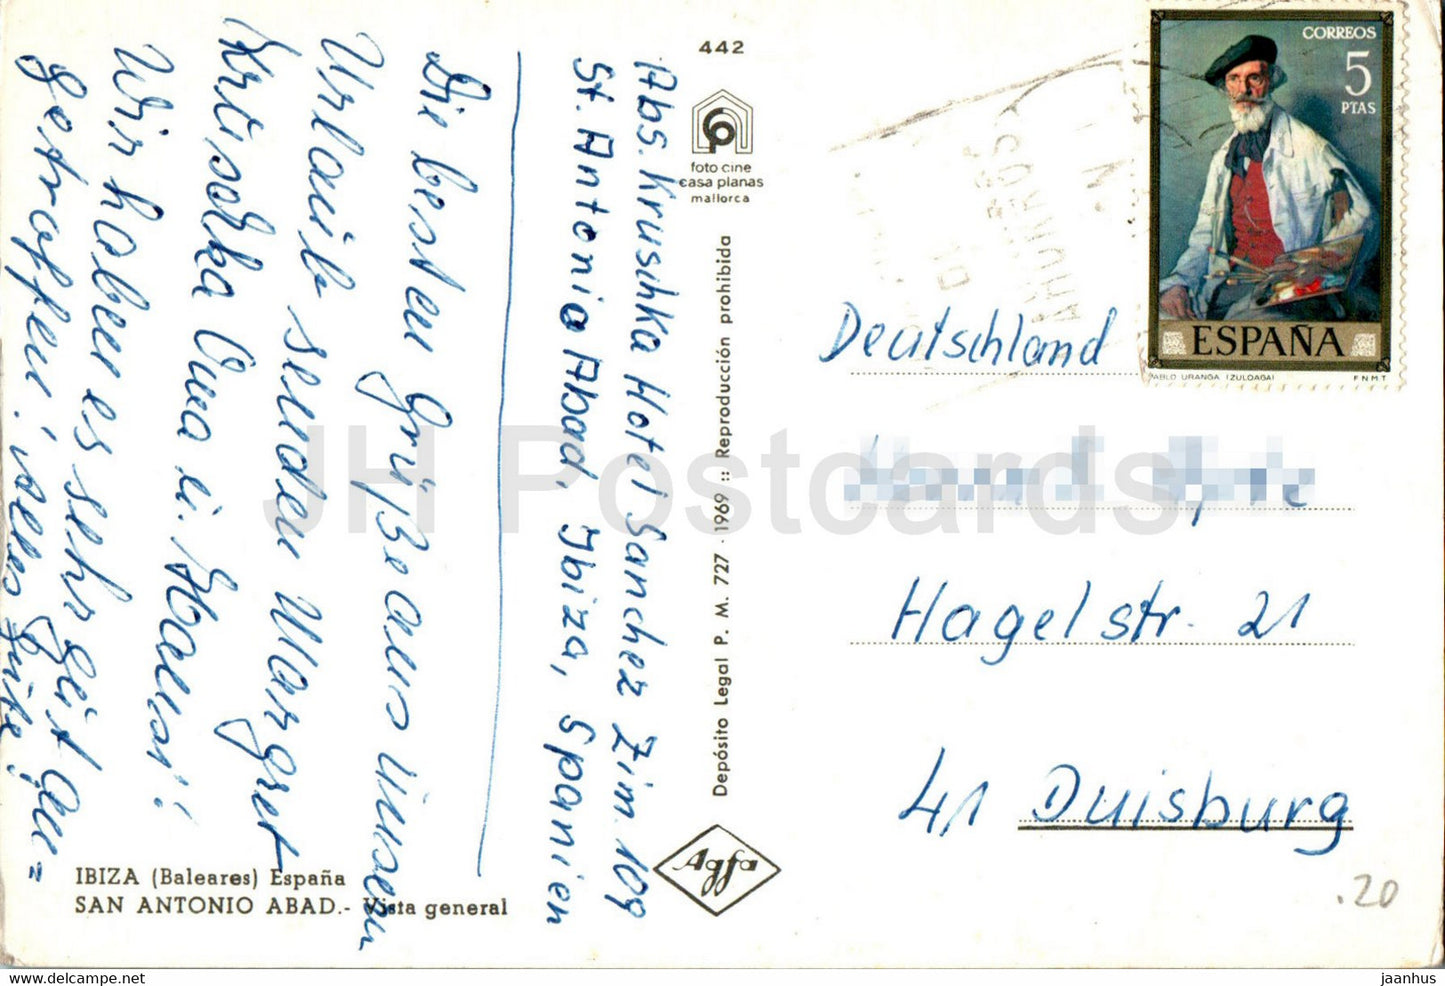 442
foto cine
casa planas
mallorca
Abs. Krusihka Hotel Sanchez Zim. 109
St. Antonia Abad, Ibiza, Spanien
Die besten Grüße aus unserem
Urlaub senden Margret
Krusihka Oma u.
Wir haben es sehr gut an=
getroffen! alles gute!
Depósito Legal P. M. 727 · 1969 :: Reproducción prohibida
Agfa
IBIZA (Baleares) España
SAN ANTONIO ABAD.- Vista general
CORREOS
5
PTAS
ESPAÑA
PABLO URANGA (ZULOAGA)
F N M T
Deutschland
Hagelstr. 21
41 Duisburg
.20
JH Postcards
jaanhus